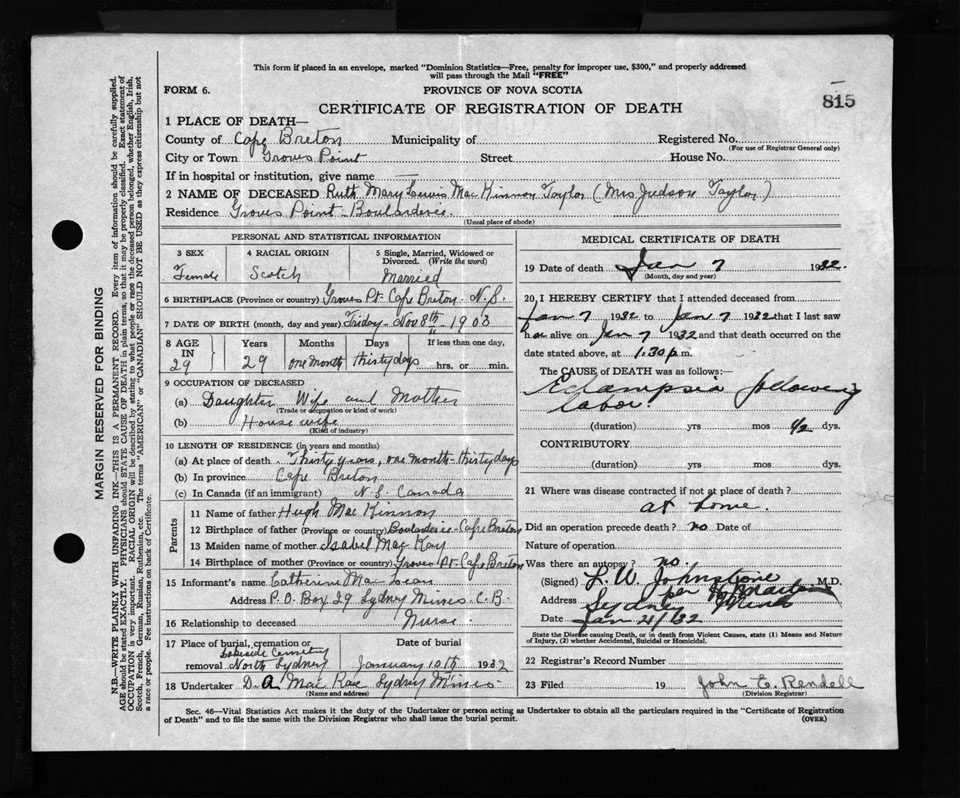 This form if placed in an envelope, marked "Dominion Statistics—Free, penalty for improper use, $300," and properly addressed
will pass through the Mail "FREE"
FORM 6.
PROVINCE OF NOVA SCOTIA
CERTIFICATE OF REGISTRATION OF DEATH
815
1 PLACE OF DEATH—
County of Cape Breton Municipality of Registered No.
(For use of Registrar General only)
City or Town Groves Point Street House No.
If in hospital or institution, give name —
2 NAME OF DECEASED Ruth Mary Lewis Mac Kinnon Taylor (Mrs Judson Taylor)
Residence Groves Point - Boularderie.
(Usual place of abode)
PERSONAL AND STATISTICAL INFORMATION
3 SEX 4 RACIAL ORIGIN 5 Single, Married, Widowed or
Divorced. (Write the word)
Female Scotch Married
6 BIRTHPLACE (Province or country) Groves Pt. Cape Breton - N.S.
7 DATE OF BIRTH (month, day and year) Friday - Nov 8th - 1903
8 AGE Years Months Days If less than one day,
IN
29 29 one month thirty days hrs. or min.
9 OCCUPATION OF DECEASED
(a) Daughter Wife and Mother
(Trade or occupation or kind of work)
(b) House wife
(Kind of industry)
10 LENGTH OF RESIDENCE (in years and months)
(a) At place of death Thirty years, one month - thirty days
(b) In province Cape Breton
(c) In Canada (if an immigrant) N.S. Canada
Parents
11 Name of father Hugh Mac Kinnon
12 Birthplace of father (Province or country) Boularderie - Cape Breton
13 Maiden name of mother Isabel Mac Kay
14 Birthplace of mother (Province or country) Groves Pt. Cape Breton
15 Informant's name Catherine Mac Lean
Address P.O. Box 29 Sydney Mines C.B.
16 Relationship to deceased Nurse.
17 Place of burial, cremation or Date of burial
Lakeside Cemetery
removal North Sydney January 10th 1932
18 Undertaker D. A. Mac Rae Sydney Mines
(Name and address)
MEDICAL CERTIFICATE OF DEATH
19 Date of death Jan 7 1932.
(Month, day and year)
20 I HEREBY CERTIFY that I attended deceased from
Jan 7 1932 to Jan 7 1932 that I last saw
her alive on Jan 7 1932 and that death occurred on the
date stated above, at 1.30 p.m.
The CAUSE of DEATH was as follows:
Eclampsia following
labor.
(duration) yrs mos 1/2 dys.
CONTRIBUTORY
(duration) yrs. mos. dys.
21 Where was disease contracted if not at place of death?
at home.
Did an operation precede death? no Date of
Nature of operation
Was there an autopsy? no.
(Signed) L. W. Johnstone M.D.
per
Address Sydney Mines
Date Jan 21/32
State the Disease causing Death, or in death from Violent Causes, state (1) Means and Nature
of Injury, (2) whether Accidental, Suicidal or Homicidal.
22 Registrar's Record Number
23 Filed 19 John E. Rendell
(Division Registrar)
Sec. 46—Vital Statistics Act makes it the duty of the Undertaker or person acting as Undertaker to obtain all the particulars required in the "Certificate of Registration
of Death" and to file the same with the Division Registrar who shall issue the burial permit.
(OVER)
MARGIN RESERVED FOR BINDING
N.B.—WRITE PLAINLY WITH UNFADING INK—THIS IS A PERMANENT RECORD. Every item of information should be carefully supplied.
AGE should be stated EXACTLY. PHYSICIANS should STATE CAUSE OF DEATH in plain terms, so that it may be properly classified. Exact statement of
OCCUPATION is very important. RACIAL ORIGIN will be described by stating to what people or race the deceased person belonged, whether English, Irish,
Scotch, French, German, Russian, Ruthenian, etc. The terms "AMERICAN" or "CANADIAN" SHOULD NOT BE USED as they express citizenship but not
a race or people. See instructions on back of Certificate.